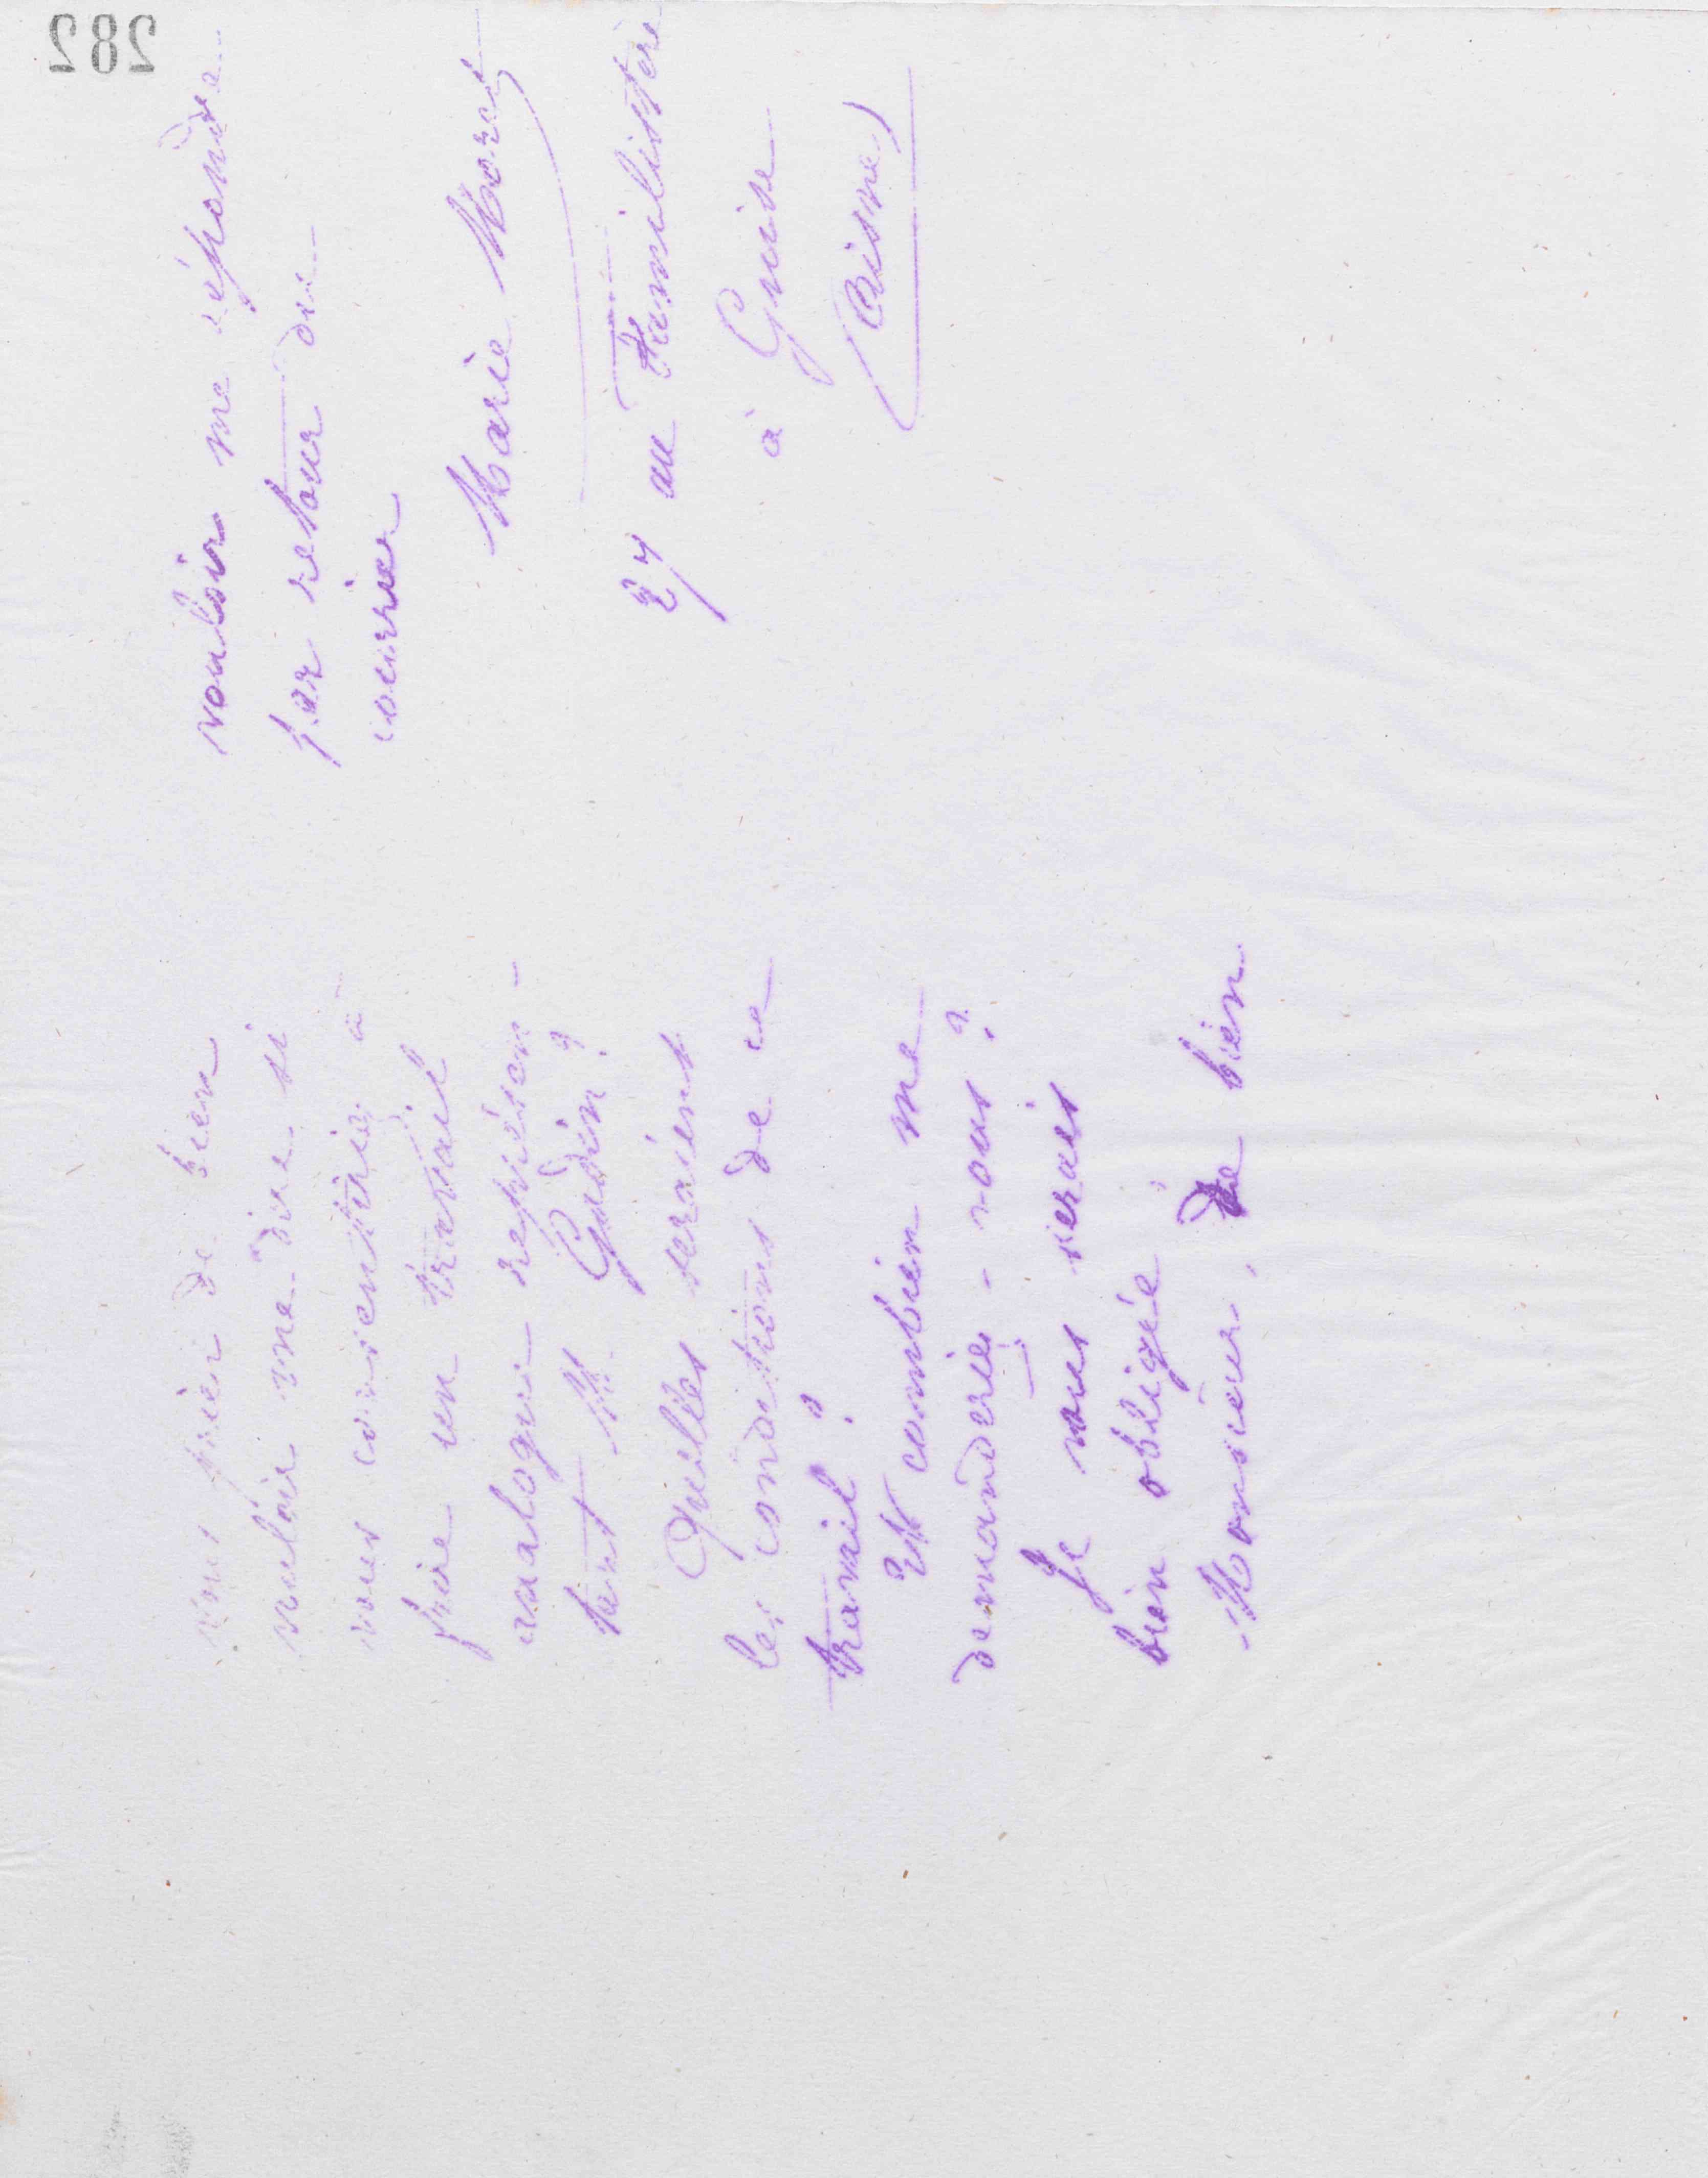 282
vous prier de bien
vouloir me dire si
vous consentiriez à
faire un travail
analogue représen-
tant M. Godin ?
Quelles seraient
les conditions de ce
travail ?
Et combien me
demanderiez-vous ?
Je vous serais
bien obligée
Monsieur, de bien
vouloir me répondre
par retour du
courrier
Marie Moret
27 au Familistère
à Guise
(Aisne)